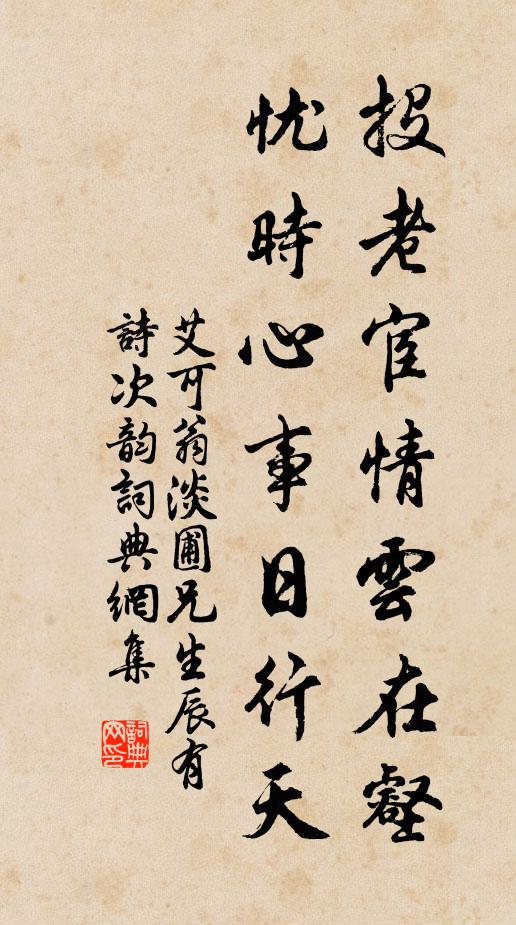 投老宦情雲在壑
忧時心事日行天
艾可翁淡圃兄生辰有
詩次韵詞典網集
詞典
网印